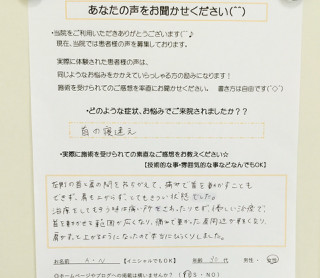 あなたの声をお聞かせください(^^)
・当院をご利用いただきありがとうございます(^^♪
現在、当院では患者様の声を募集しております。
実際に体験された患者様の声は、
同じようなお悩みをかかえていらっしゃる方の励みになります！
施術を受けられてのご感想を率直にお聞かせください。 書き方は自由です(^◇^)
・どのような症状、お悩みでご来院されましたか？？
首の寝違え
・実際に施術を受けられての素直なご感想をお教えください☆
【技術的な事・雰囲気的な事などなんでもOK】
左側の首と肩の間をおさえて、痛みで首を動かすことも
できず、肩も上がらず、とてもつらい状態でした。
治療をしてもらう時は痛い所を
首を動かせる範囲が広くなり、痛みで重かった肩周辺が軽くなり、
肩がすっと上がるようになったので本当にびっくりしました。
お名前 A・N 【イニシャルでもOK】 年齢 30代 男性・女性
◎ホームページやブログへの掲載は構いませんか？ (YES・NO)